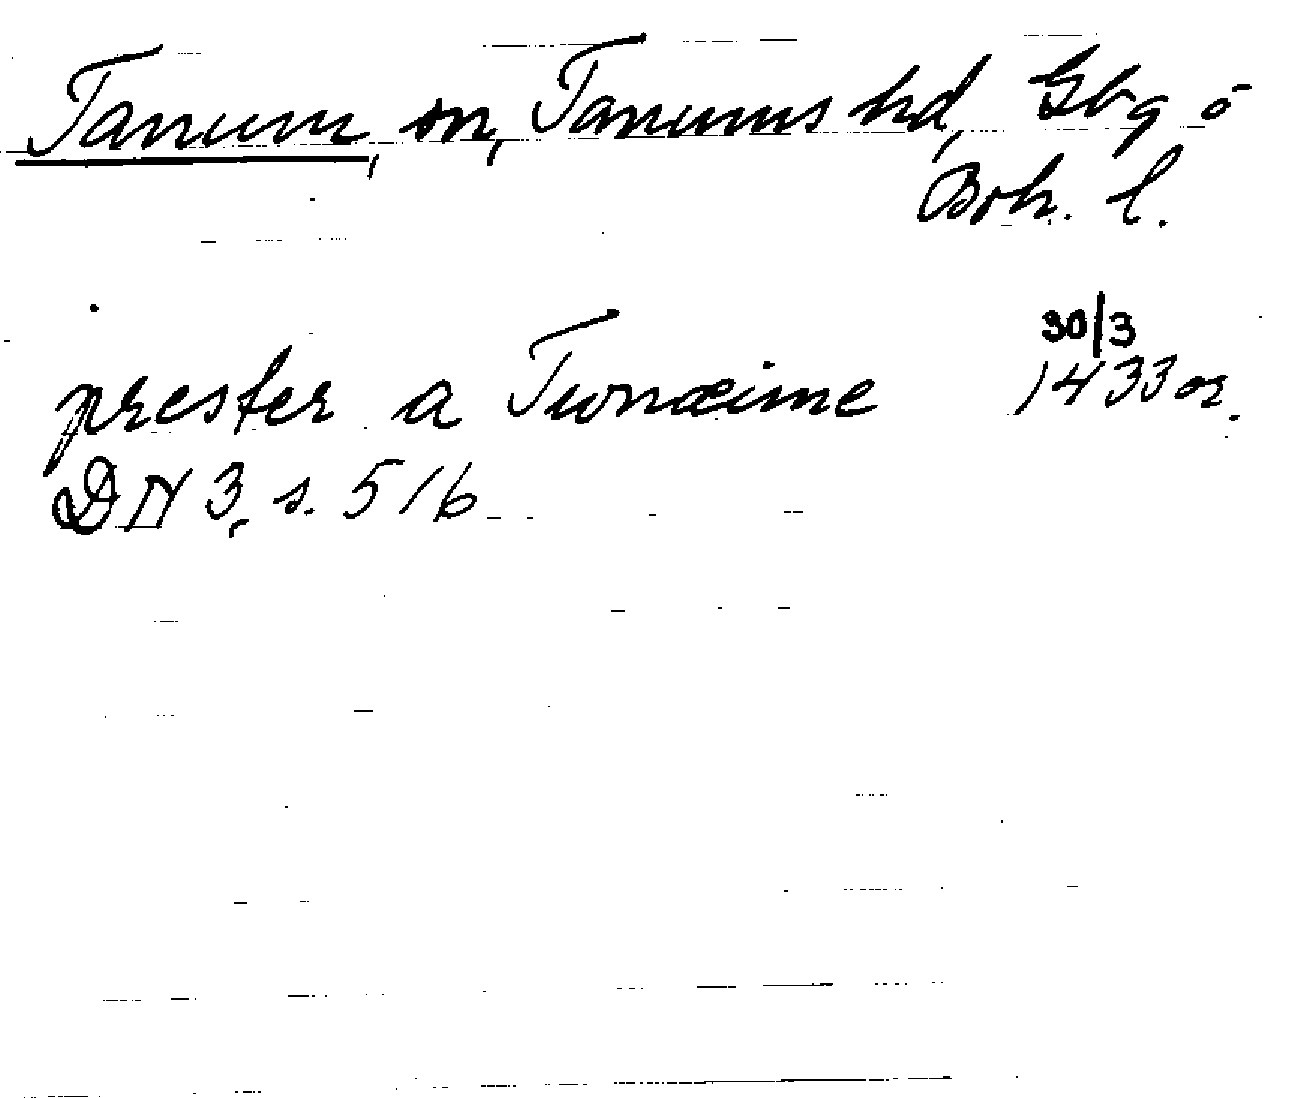 Tanum, sn, Tanums hd, Gbg o
Boh. l.
30/3
prester a Tunæime 1433 or.
DN 3, s. 516